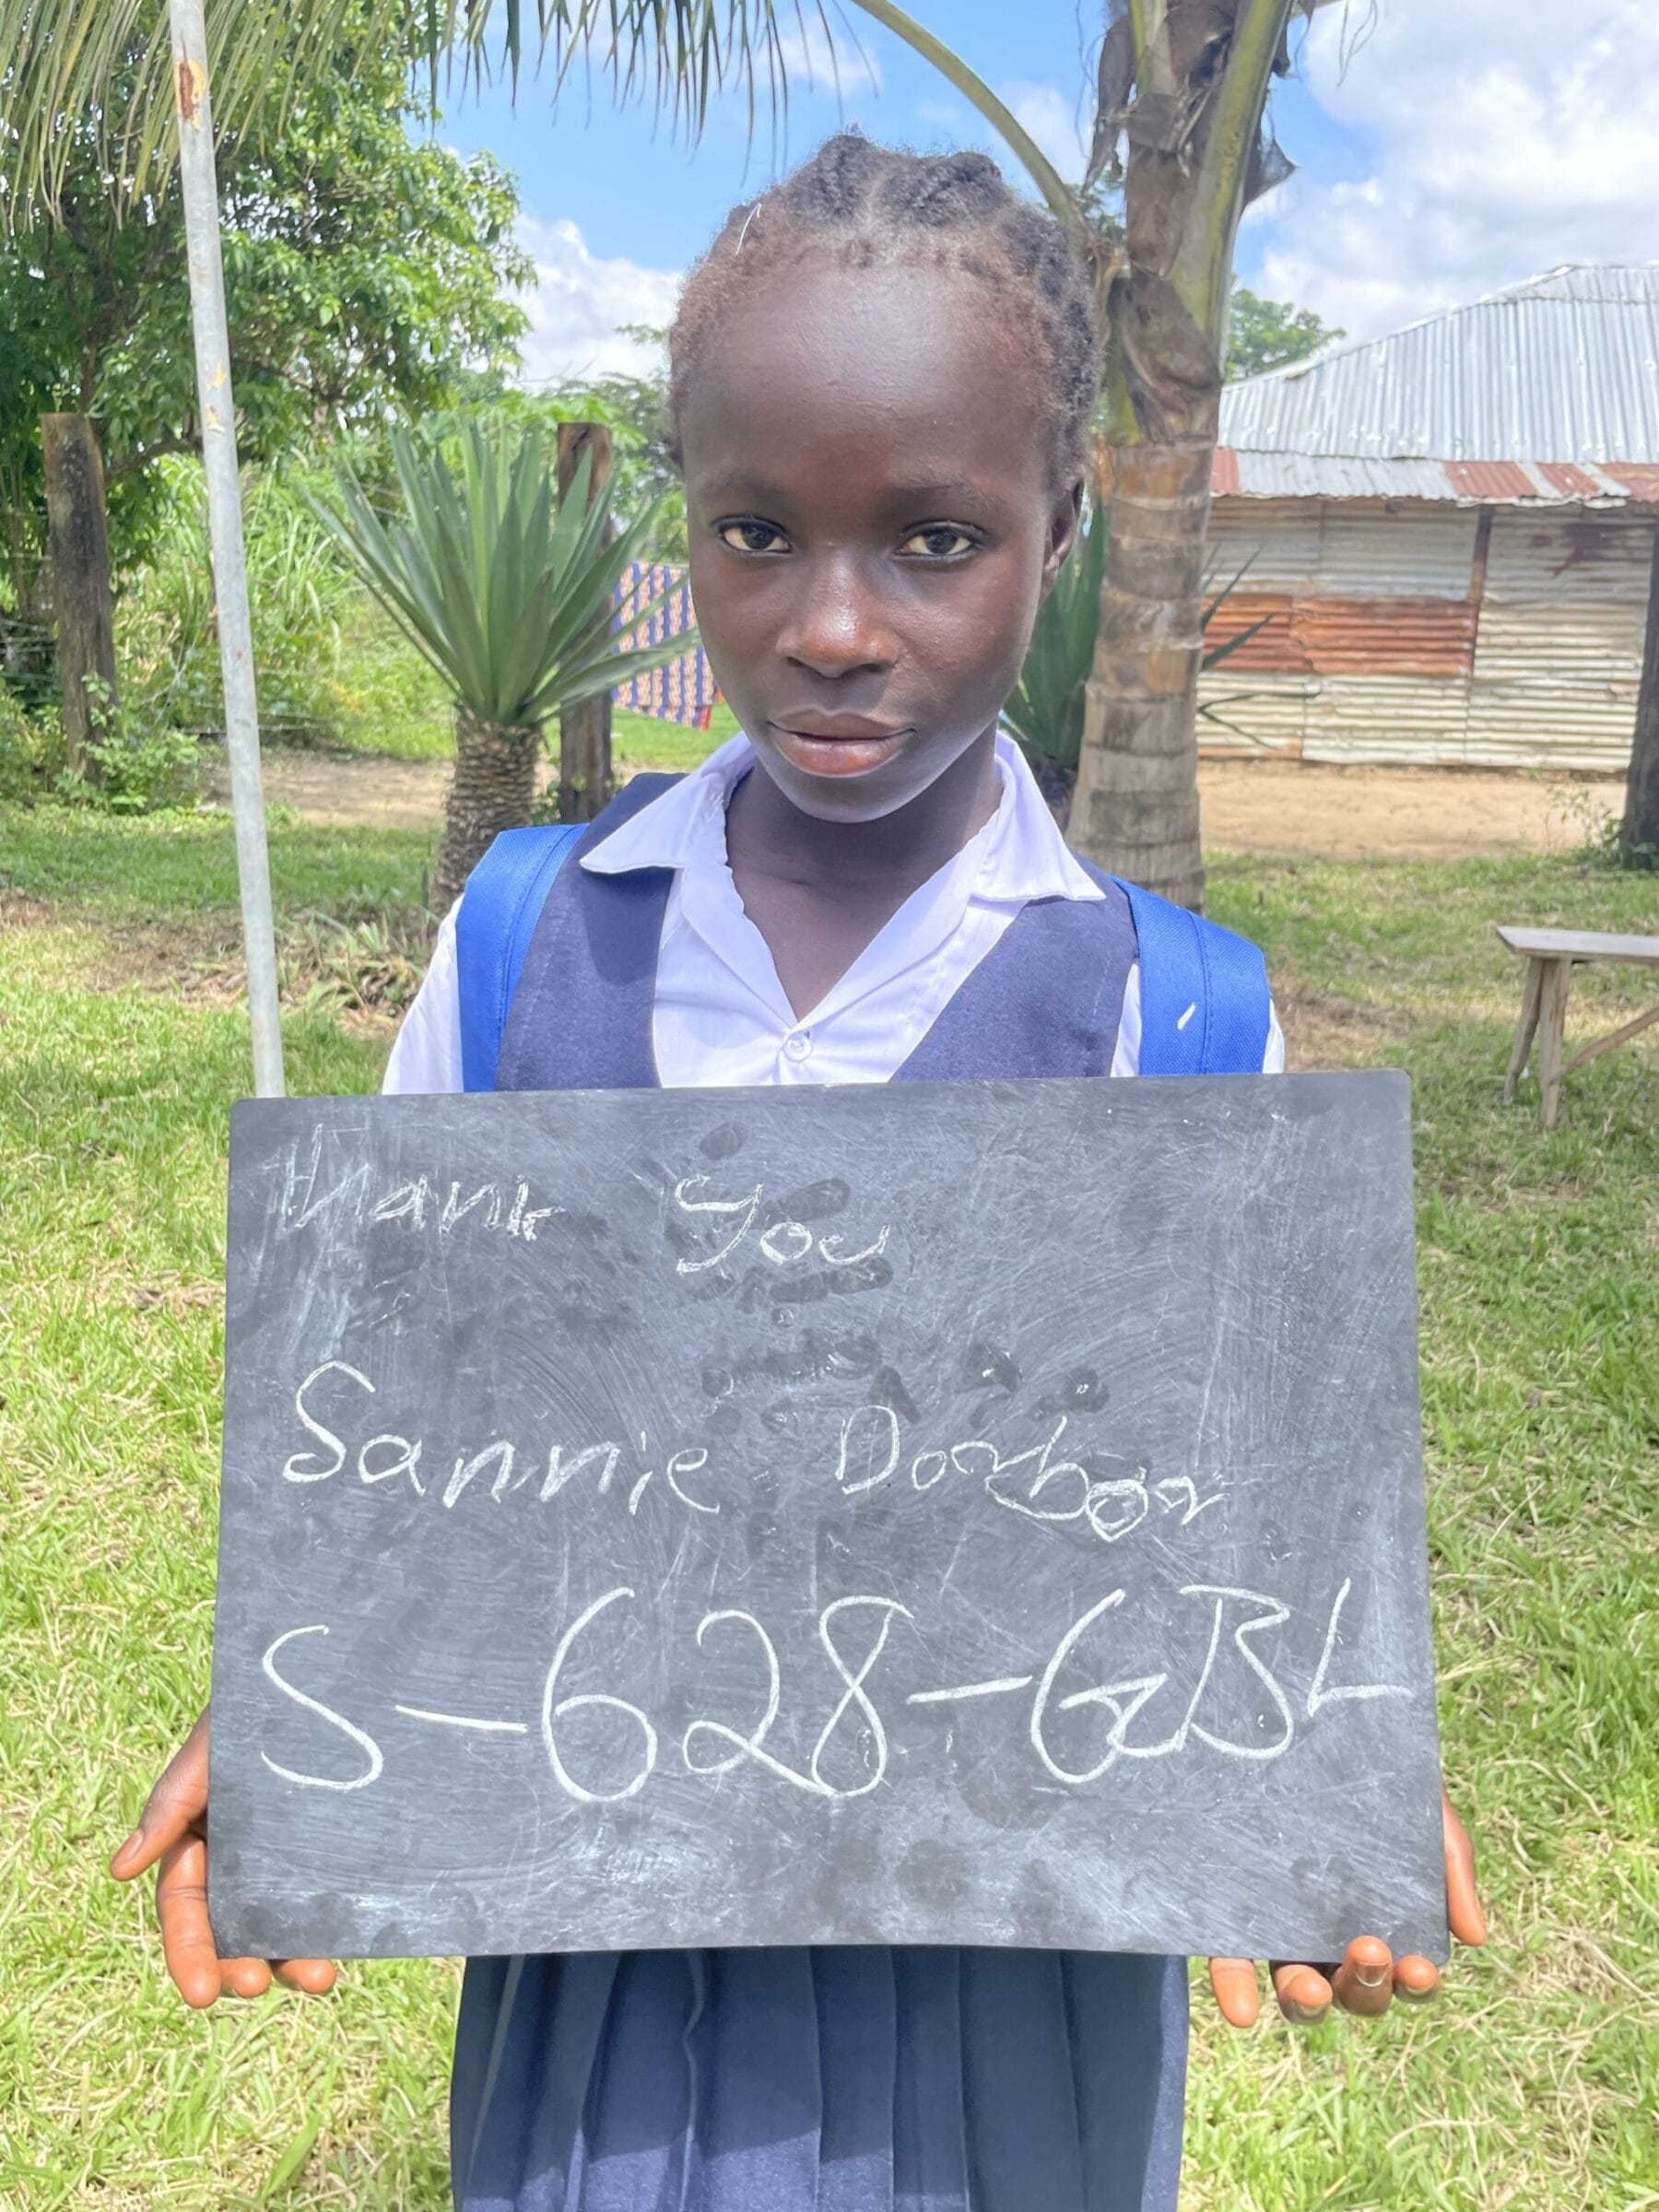 thank you
Sannie Dorbor
S-628-GBL